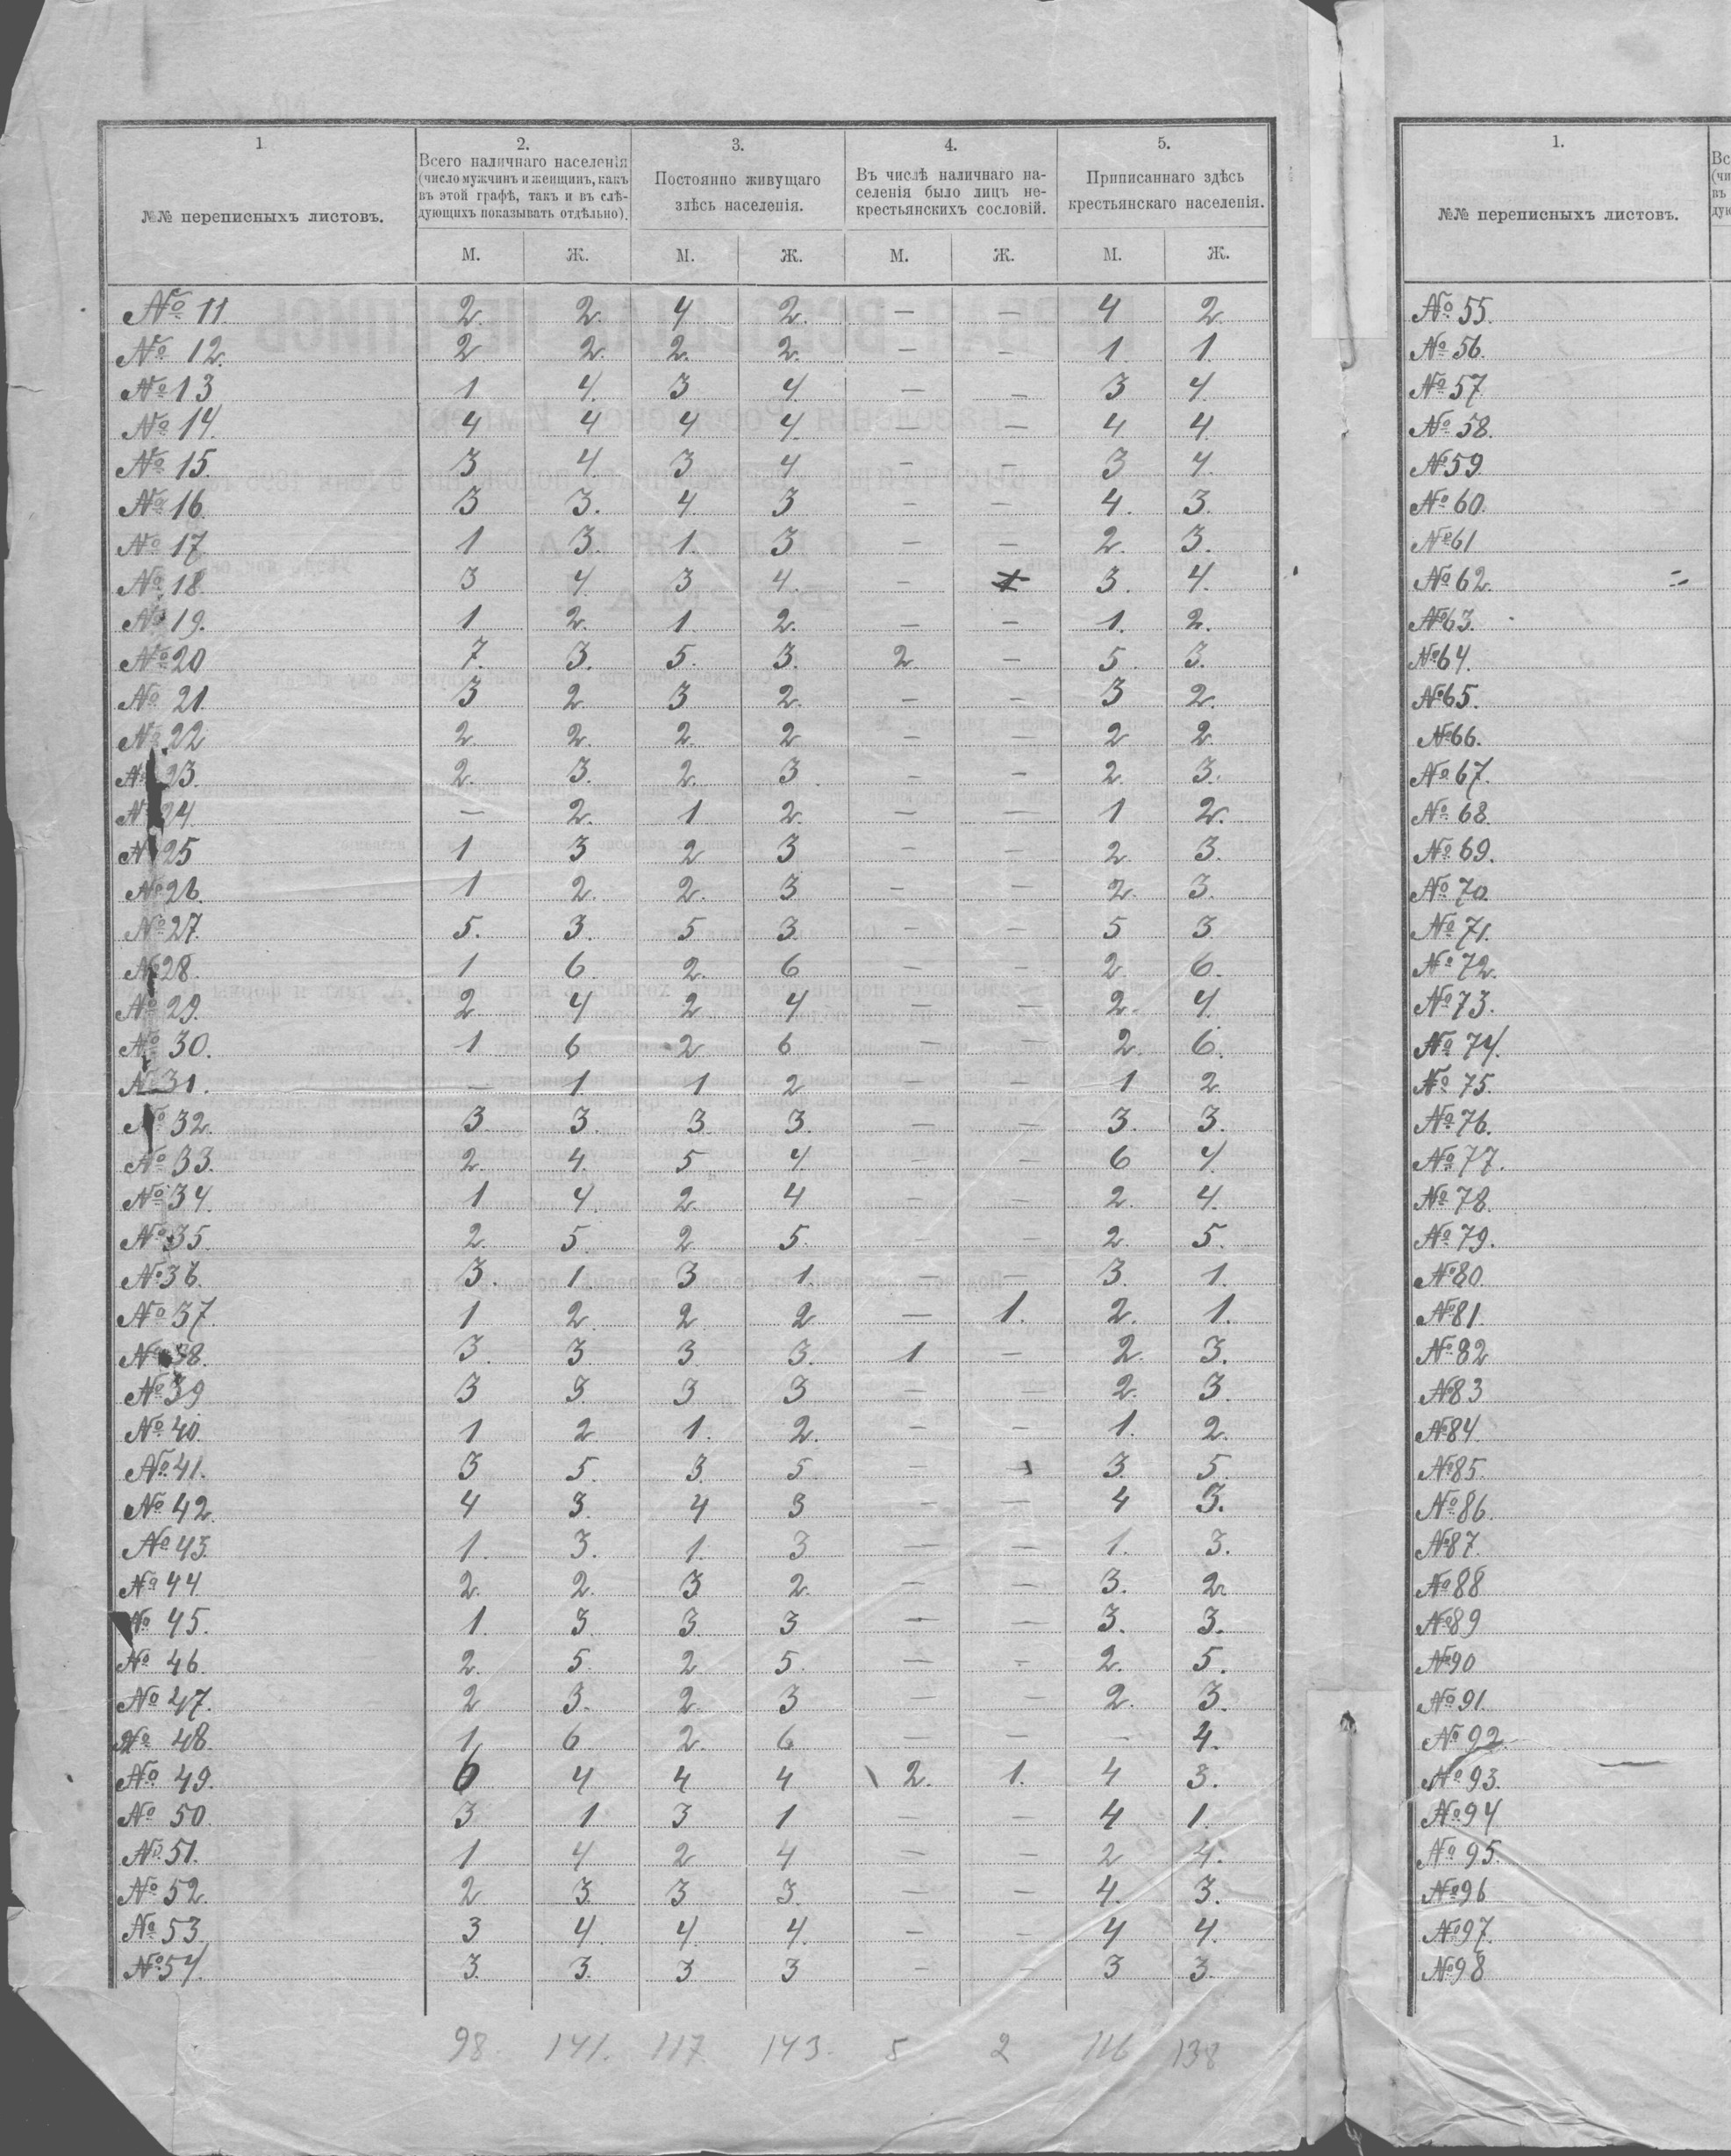 1
№№ переписныхъ листовъ.
2.
Всего наличнаго населенія
(число мужчинъ и женщинъ, какъ
въ этой графѣ, такъ и въ слѣ-
дующихъ показывать отдѣльно).
3.
Постоянно живущаго
здѣсь населенія.
4.
Въ числѣ наличнаго на-
селенія было лицъ не-
крестьянскихъ сословій.
5.
Приписаннаго здѣсь
крестьянскаго населенія.
М. Ж. М. Ж. М. Ж. М. Ж.
№ 11. 2. 2. 4 2. — — 4 2.
№ 12. 2 2. 2. 2. — — 1. 1.
№ 13 1 4. 3 4. — — 3 4.
№ 14. 4 4 4 4. — — 4 4.
№ 15. 3 4. 3 4 — — 3 4.
№ 16. 3 3. 4 3 — — 4. 3.
№ 17. 1 3. 1. 3 — — 2. 3.
№ 18. 3 4. 3 4. — 3. 4.
№ 19. 1 2. 1. 2. — — 1. 2.
№ 20 7. 3. 5. 3. 2 — 5. 3.
№ 21. 3 2. 3 2. — — 3 2.
№ 22 2. 2. 2. 2 — — 2 2.
№ 23. 2. 3. 2. 3 — — 2. 3.
№ 24. — 2. 1 2. — — 1 2.
№ 25 1 3 2 3 — — 2. 3.
№ 26. 1 2. 2. 3 — — 2. 3.
№ 27. 5. 3. 5 3 — — 5 3
№ 28. 1 6. 2. 6 — — 2. 6.
№ 29. 2. 4 2 4 — — 2. 4.
№ 30. 1 6 2 6 — — 2. 6.
№ 31. — 1 1 2 — — 1 2.
№ 32. 3. 3. 3. 3. — — 3. 3.
№ 33. 2. 4. 5 4. — — 6 4.
№ 34. 1 4. 2. 4 — — 2. 4.
№ 35. 2. 5. 2 5. — — 2. 5.
№ 36. 3. 1 3 1. — — 3. 1.
№ 37. 1 2. 2 2 — 1. 2. 1.
№ 38. 3. 3 3 3. 1 — 2. 3.
№ 39 3 3. 3 3 — — 2. 3
№ 40. 1 2 1. 2. — — 1. 2.
№ 41. 3 5. 3. 5. — — 3. 5.
№ 42. 4 3. 4 3 — — 4 3.
№ 43. 1. 3. 1. 3 — — 1. 3.
№ 44 2. 2. 3 2. — — 3. 2
№ 45. 1. 3. 3. 3 — — 3. 3.
№ 46. 2. 5. 2 5. — — 2. 5.
№ 47. 2 3. 2. 3 — — 2. 3.
№ 48. 1 6. 2. 6 — — — 4.
№ 49. 6 4 4 4 2. 1. 4 3.
№ 50. 3 1 3 1 — — 4 1.
№ 51. 1 4 2 4 — — 2 4.
№ 52. 2 3. 3 3. — — 4. 3.
№ 53. 3 4. 4. 4. — — 4 4.
№ 54. 3. 3. 3 3 — — 3 3.
98. 141. 117 143. 5 2 116 138
1.
№№ переписныхъ листовъ.
Вс
(чи
въ
дую
№ 55.
№ 56.
№ 57.
№ 58.
№ 59.
№ 60.
№ 61
№ 62.
№ 63.
№ 64.
№ 65.
№ 66.
№ 67.
№ 68.
№ 69.
№ 70.
№ 71.
№ 72.
№ 73.
№ 74.
№ 75.
№ 76.
№ 77.
№ 78.
№ 79.
№ 80
№ 81.
№ 82
№ 83
№ 84.
№ 85.
№ 86.
№ 87.
№ 88
№ 89
№ 90
№ 91.
№ 92.
№ 93.
№ 94
№ 95.
№ 96
№ 97.
№ 98